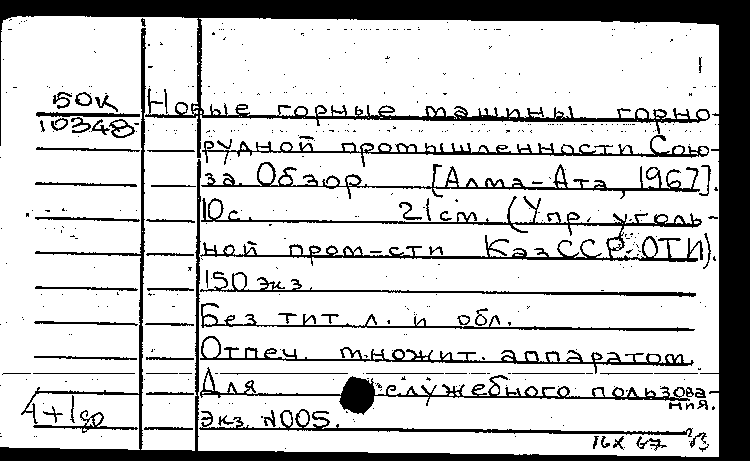 1
БОК Новые горные машины горно-
10348
рудной промышленности Сою-
за. Обзор. [Алма-Ата, 1967].
10с. 21см. (Упр. уголь-
ной пром-сти КазССР. ОТИ).
150 экз.
Без тит. л. и обл.
Отпеч. множит. аппаратом.
Для служебного пользова-
ния.
4+1
Экз. №005.
16X 67